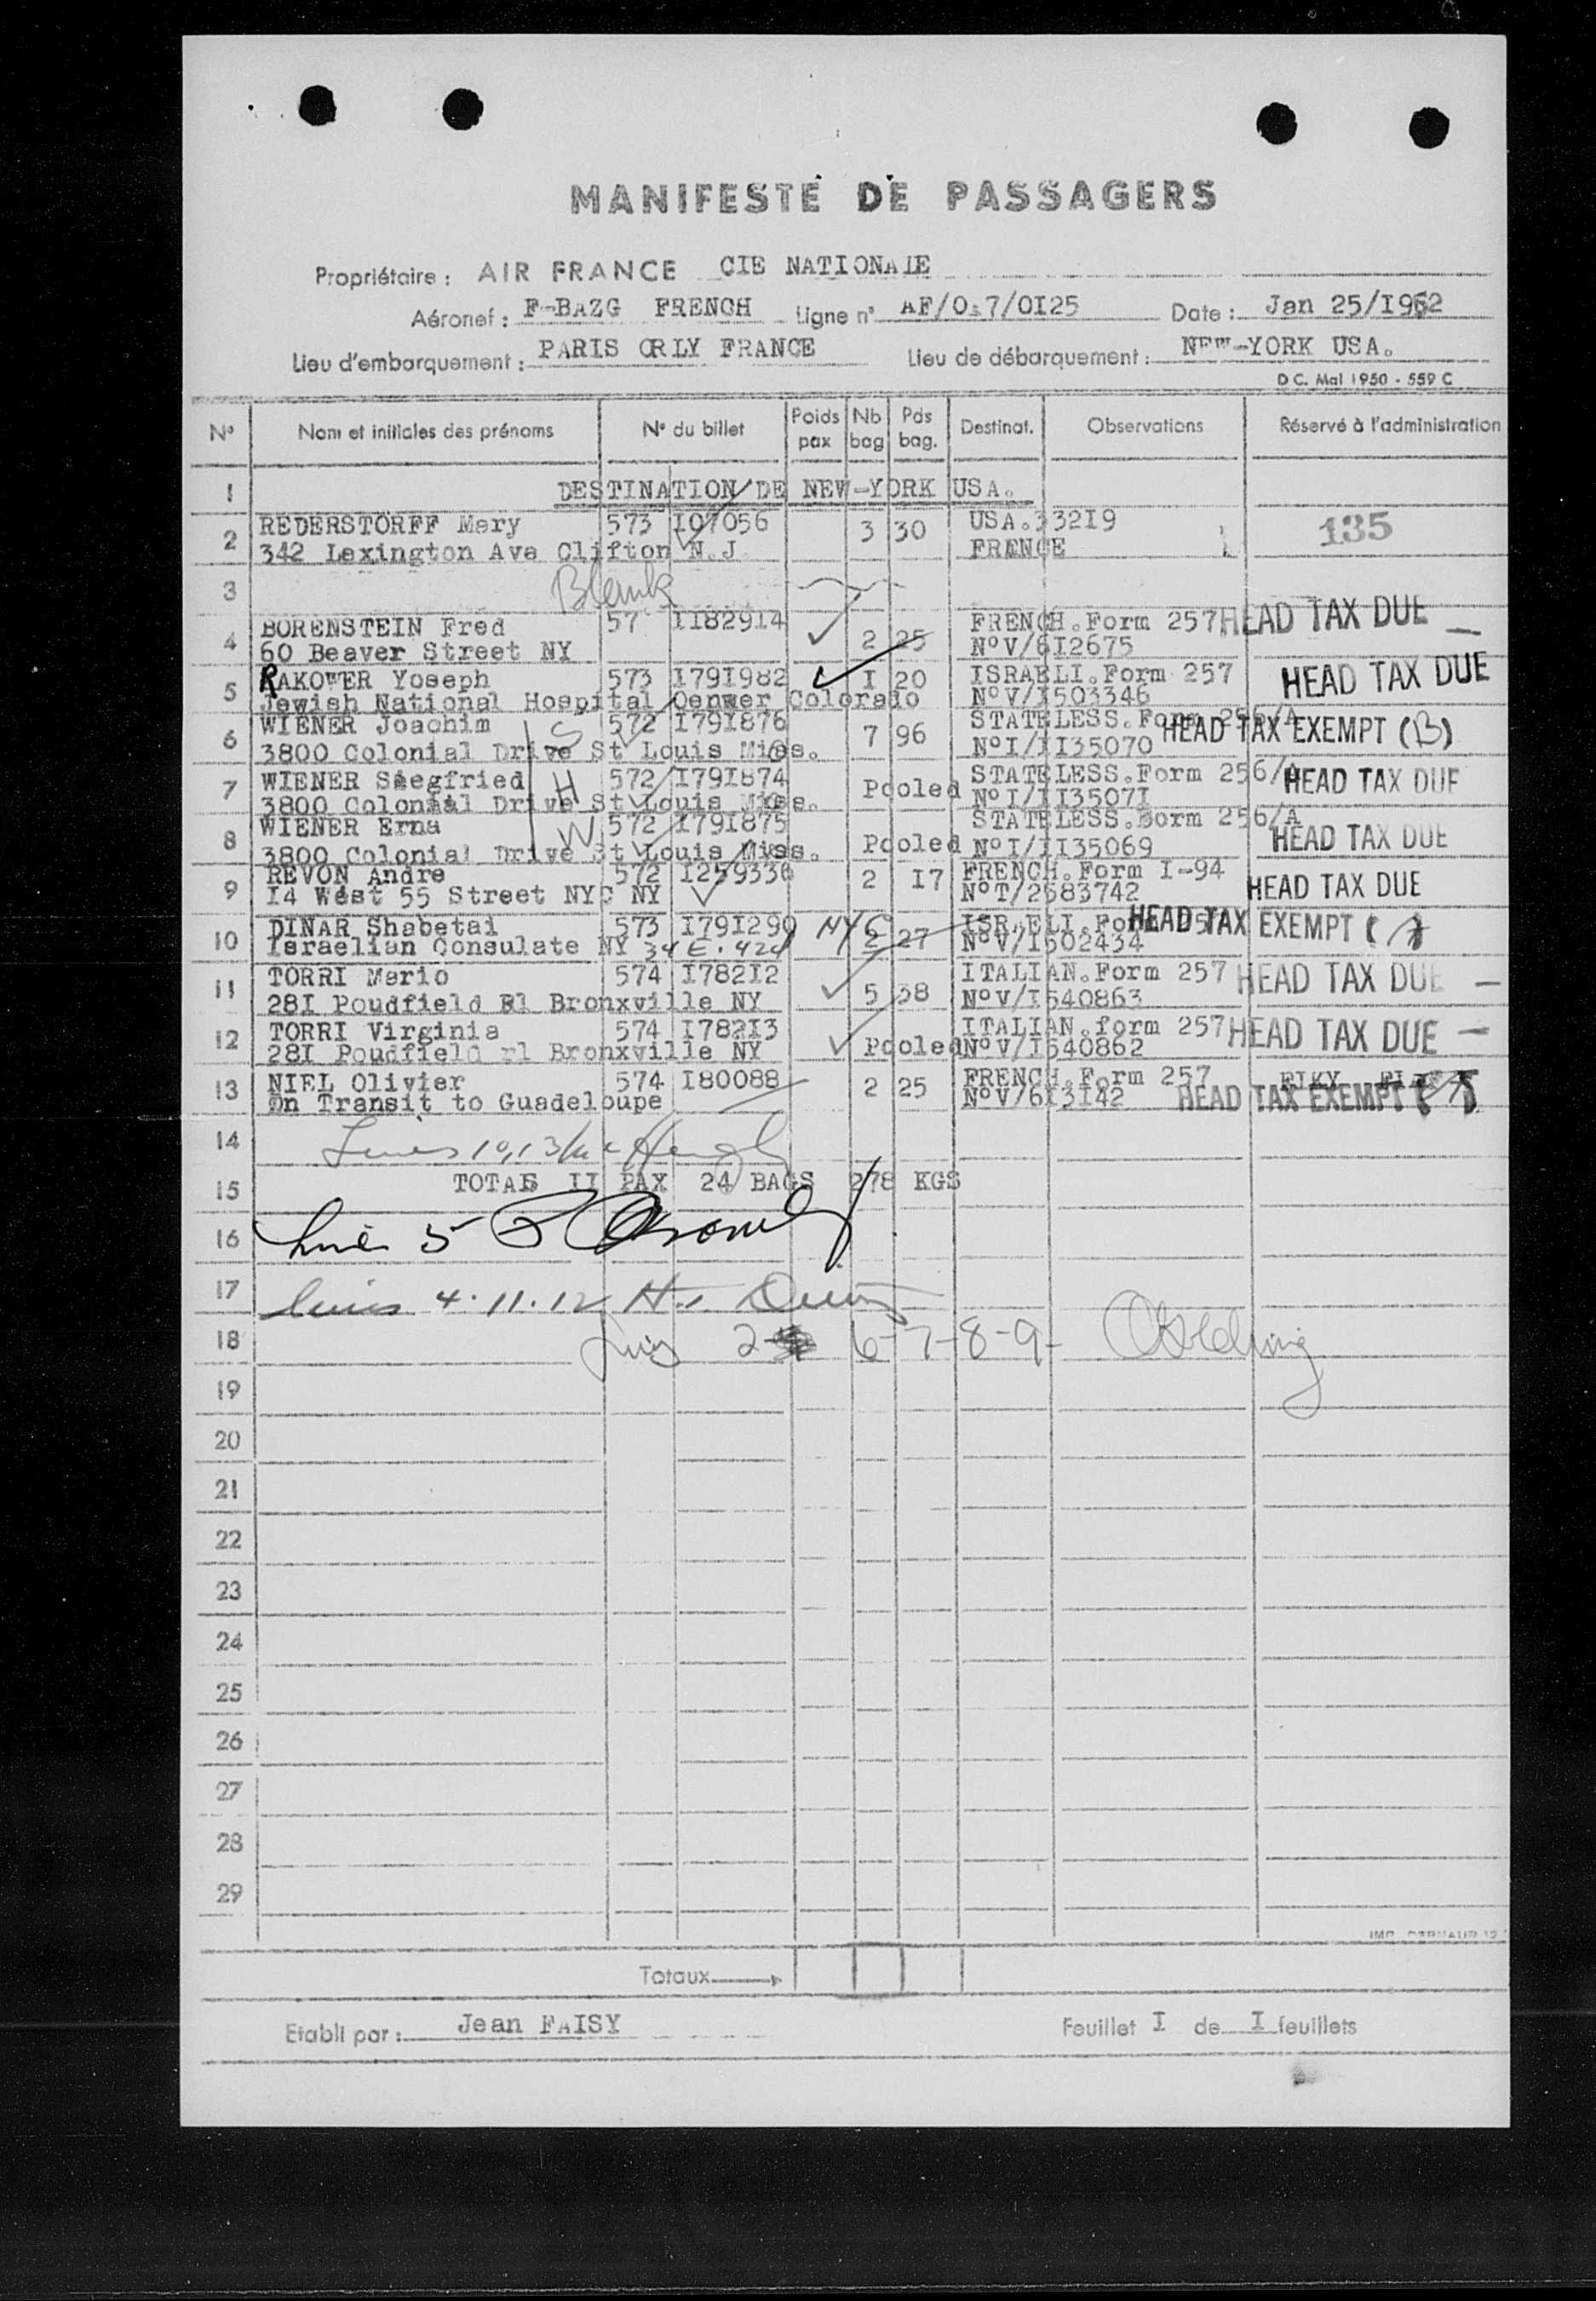 MANIFESTE DE PASSAGERS
Propriétaire : AIR FRANCE CIE NATIONALE
Aéronef : F-BAZG FRENCH Ligne n° AF/0.7/0I25 Date : Jan 25/I952
Lieu d'embarquement : PARIS ORLY FRANCE Lieu de débarquement : NEW-YORK USA.
D C. Mai 1950 - 559 C
N° Nom et initiales des prénoms N° du billet Poids pax Nb bag Pds bag. Destinat. Observations Réservé à l'administration
1 DESTINATION DE NEW-YORK USA.
2 REDERSTORFF Mary 573 I07056 3 30 USA.332I9 135
342 Lexington Ave Clifton N.J. FRANCE
3 Blank
4 BORENSTEIN Fred 57 II829I4 2 25 FRENCH.Form 257 HEAD TAX DUE
60 Beaver Street NY N°V/6I2675
5 RAKOWER Yoseph 573 I79I982 I 20 ISRAELI.Form 257 HEAD TAX DUE
Jewish National Hospital Denwer Colorado N°V/I503346
6 WIENER Joachim S 572 I79I876 7 96 STATELESS.Form 256/A HEAD TAX EXEMPT (B)
3800 Colonial Drive St Louis Miss. N°I/II35070
7 WIENER Siegfried H 572 I79I874 Pooled STATELESS.Form 256/A HEAD TAX DUE
3800 Colonial Drive St Louis Miss. N°I/II3507I
8 WIENER Erna W 572 I79I875 Pooled STATELESS.Form 256/A HEAD TAX DUE
3800 Colonial Drive St Louis Miss. N°I/II35069
9 REVON Andre 572 I259336 2 I7 FRENCH.Form I-94 HEAD TAX DUE
I4 West 55 Street NYC NY N°T/2683742
10 DINAR Shabetai 573 I79I290 NYC 2 27 ISRAELI.Form HEAD TAX EXEMPT
Israelian Consulate NY 34 E. 42d N°V/I502434
11 TORRI Mario 574 I782I2 5 38 ITALIAN.Form 257 HEAD TAX DUE
28I Poudfield Rl Bronxville NY N°V/I540863
12 TORRI Virginia 574 I782I3 Pooled ITALIAN.form 257 HEAD TAX DUE
28I Poudfield rl Bronxville NY N°V/I540862
13 NIEL Olivier 574 I80088 2 25 FRENCH.Form 257
On Transit to Guadeloupe N°V/6I3I42 HEAD TAX EXEMPT
14 Lines 10,13
15 TOTAL II PAX 24 BAGS 278 KGS
16 Line 5
17 Lines 4.11.12
18 Lines 2 6-7-8-9-
19
20
21
22
23
24
25
26
27
28
29
Totaux
Etabli par : Jean FAISY Feuillet I de I feuillets